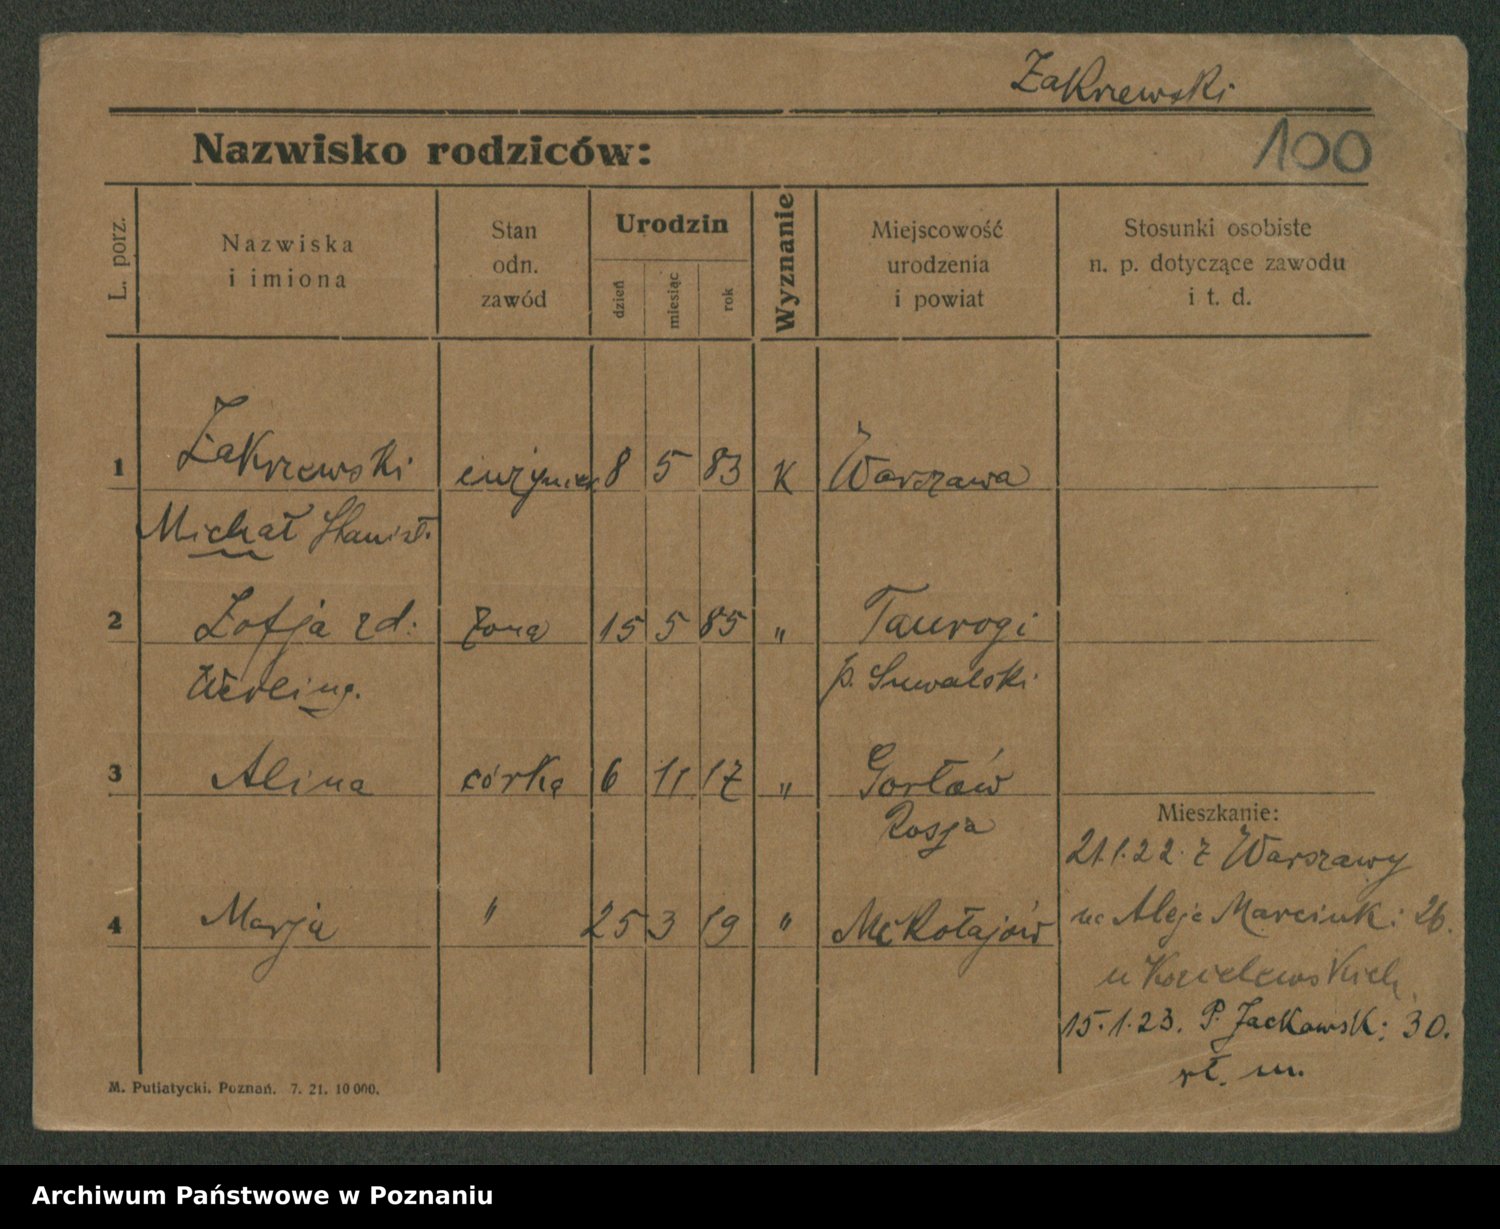 Zakrzewski
100
Nazwisko rodziców:
L. porz.
Nazwiska
i imiona
Stan
odn.
zawód
Urodzin
dzień
miesiąc
rok
Wyznanie
Miejscowość
urodzenia
i powiat
Stosunki osobiste
n. p. dotyczące zawodu
i t. d.
1 Zakrzewski inżynier 8 5 83 K Warszawa
Michał Stanisł.
2 Zofja zd. żona 15 5 85 " Taurogi
Werling. p. Suwalski
3 Alina córka 6 11 17 " Gorłów
Rosja
Mieszkanie:
21.1.22. z Warszawy
4 Marja " 25 3 19 " Mikołajów
na Aleje Marcink: 26.
u
15.1.23. P. Jackowsk: 30.
wł. m.
M. Putiatycki. Poznań. 7. 21. 10 000.
Archiwum Państwowe w Poznaniu